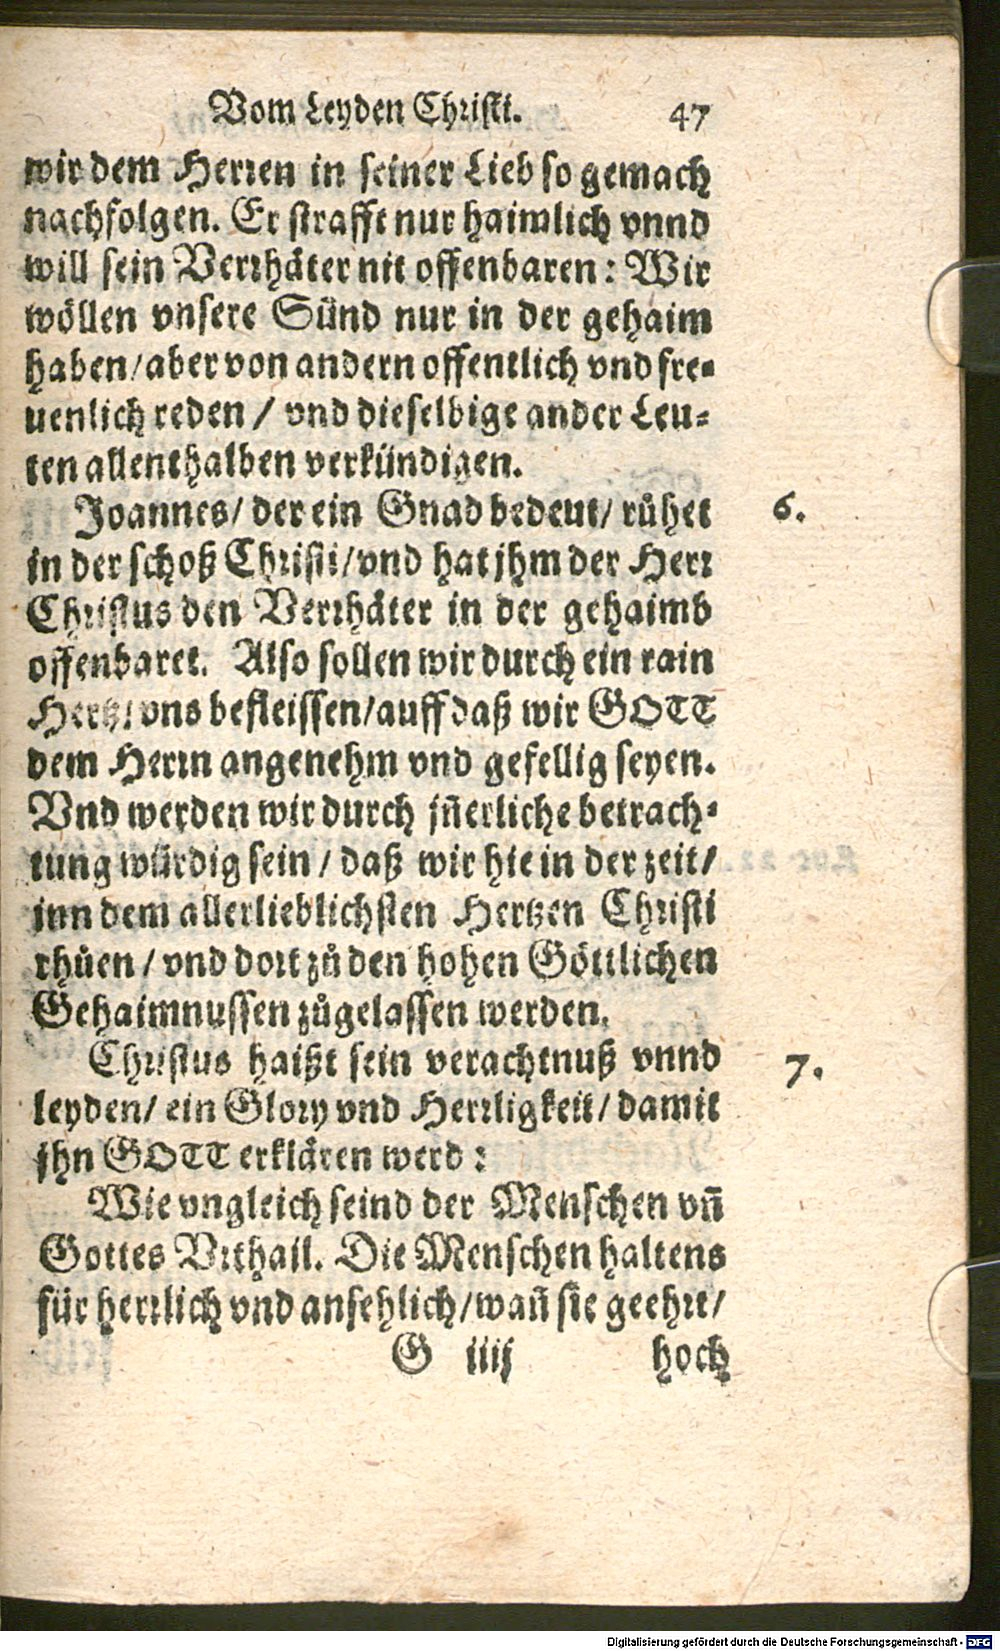 Vom Leyden Christi. 47
wir dem Herren in seiner Lieb so gemach
nachfolgen. Er strafft nur haimlich vnnd
will sein Verrhäter nit offenbaren: Wir
wöllen vnsere Sünd nur in der gehaim
haben/aber von andern offentlich vnd fre-
uenlich reden / vnd dieselbige ander Leu-
ten allenthalben verkündigen.
Joannes/ der ein Gnad bedeut/ růhet 6.
in der schoß Christi/vnd hat jhm der Herr
Christus den Verrhäter in der gehaimb
offenbaret. Also sollen wir durch ein rain
Hertz/vns befleissen/auff daß wir GOTT
dem Herrn angenehm vnd gefellig seyen.
Vnd werden wir durch jñerliche betrach-
tung würdig sein / daß wir hie in der zeit/
inn dem allerlieblichsten Hertzen Christi
rhůen / vnd dort zů den hohen Göttlichen
Gehaimnussen zůgelassen werden.
Christus haißt sein verachtnuß vnnd 7.
leyden/ ein Glory vnd Herrligkeit/ damit
jhn GOTT erklären werd:
Wie vngleich seind der Menschen vñ
Gottes Vrthail. Die Menschen haltens
für herrlich vnd ansehlich/wañ sie geehrt/
G iiij hoch
Digitalisierung gefördert durch die Deutsche Forschungsgemeinschaft - DFG